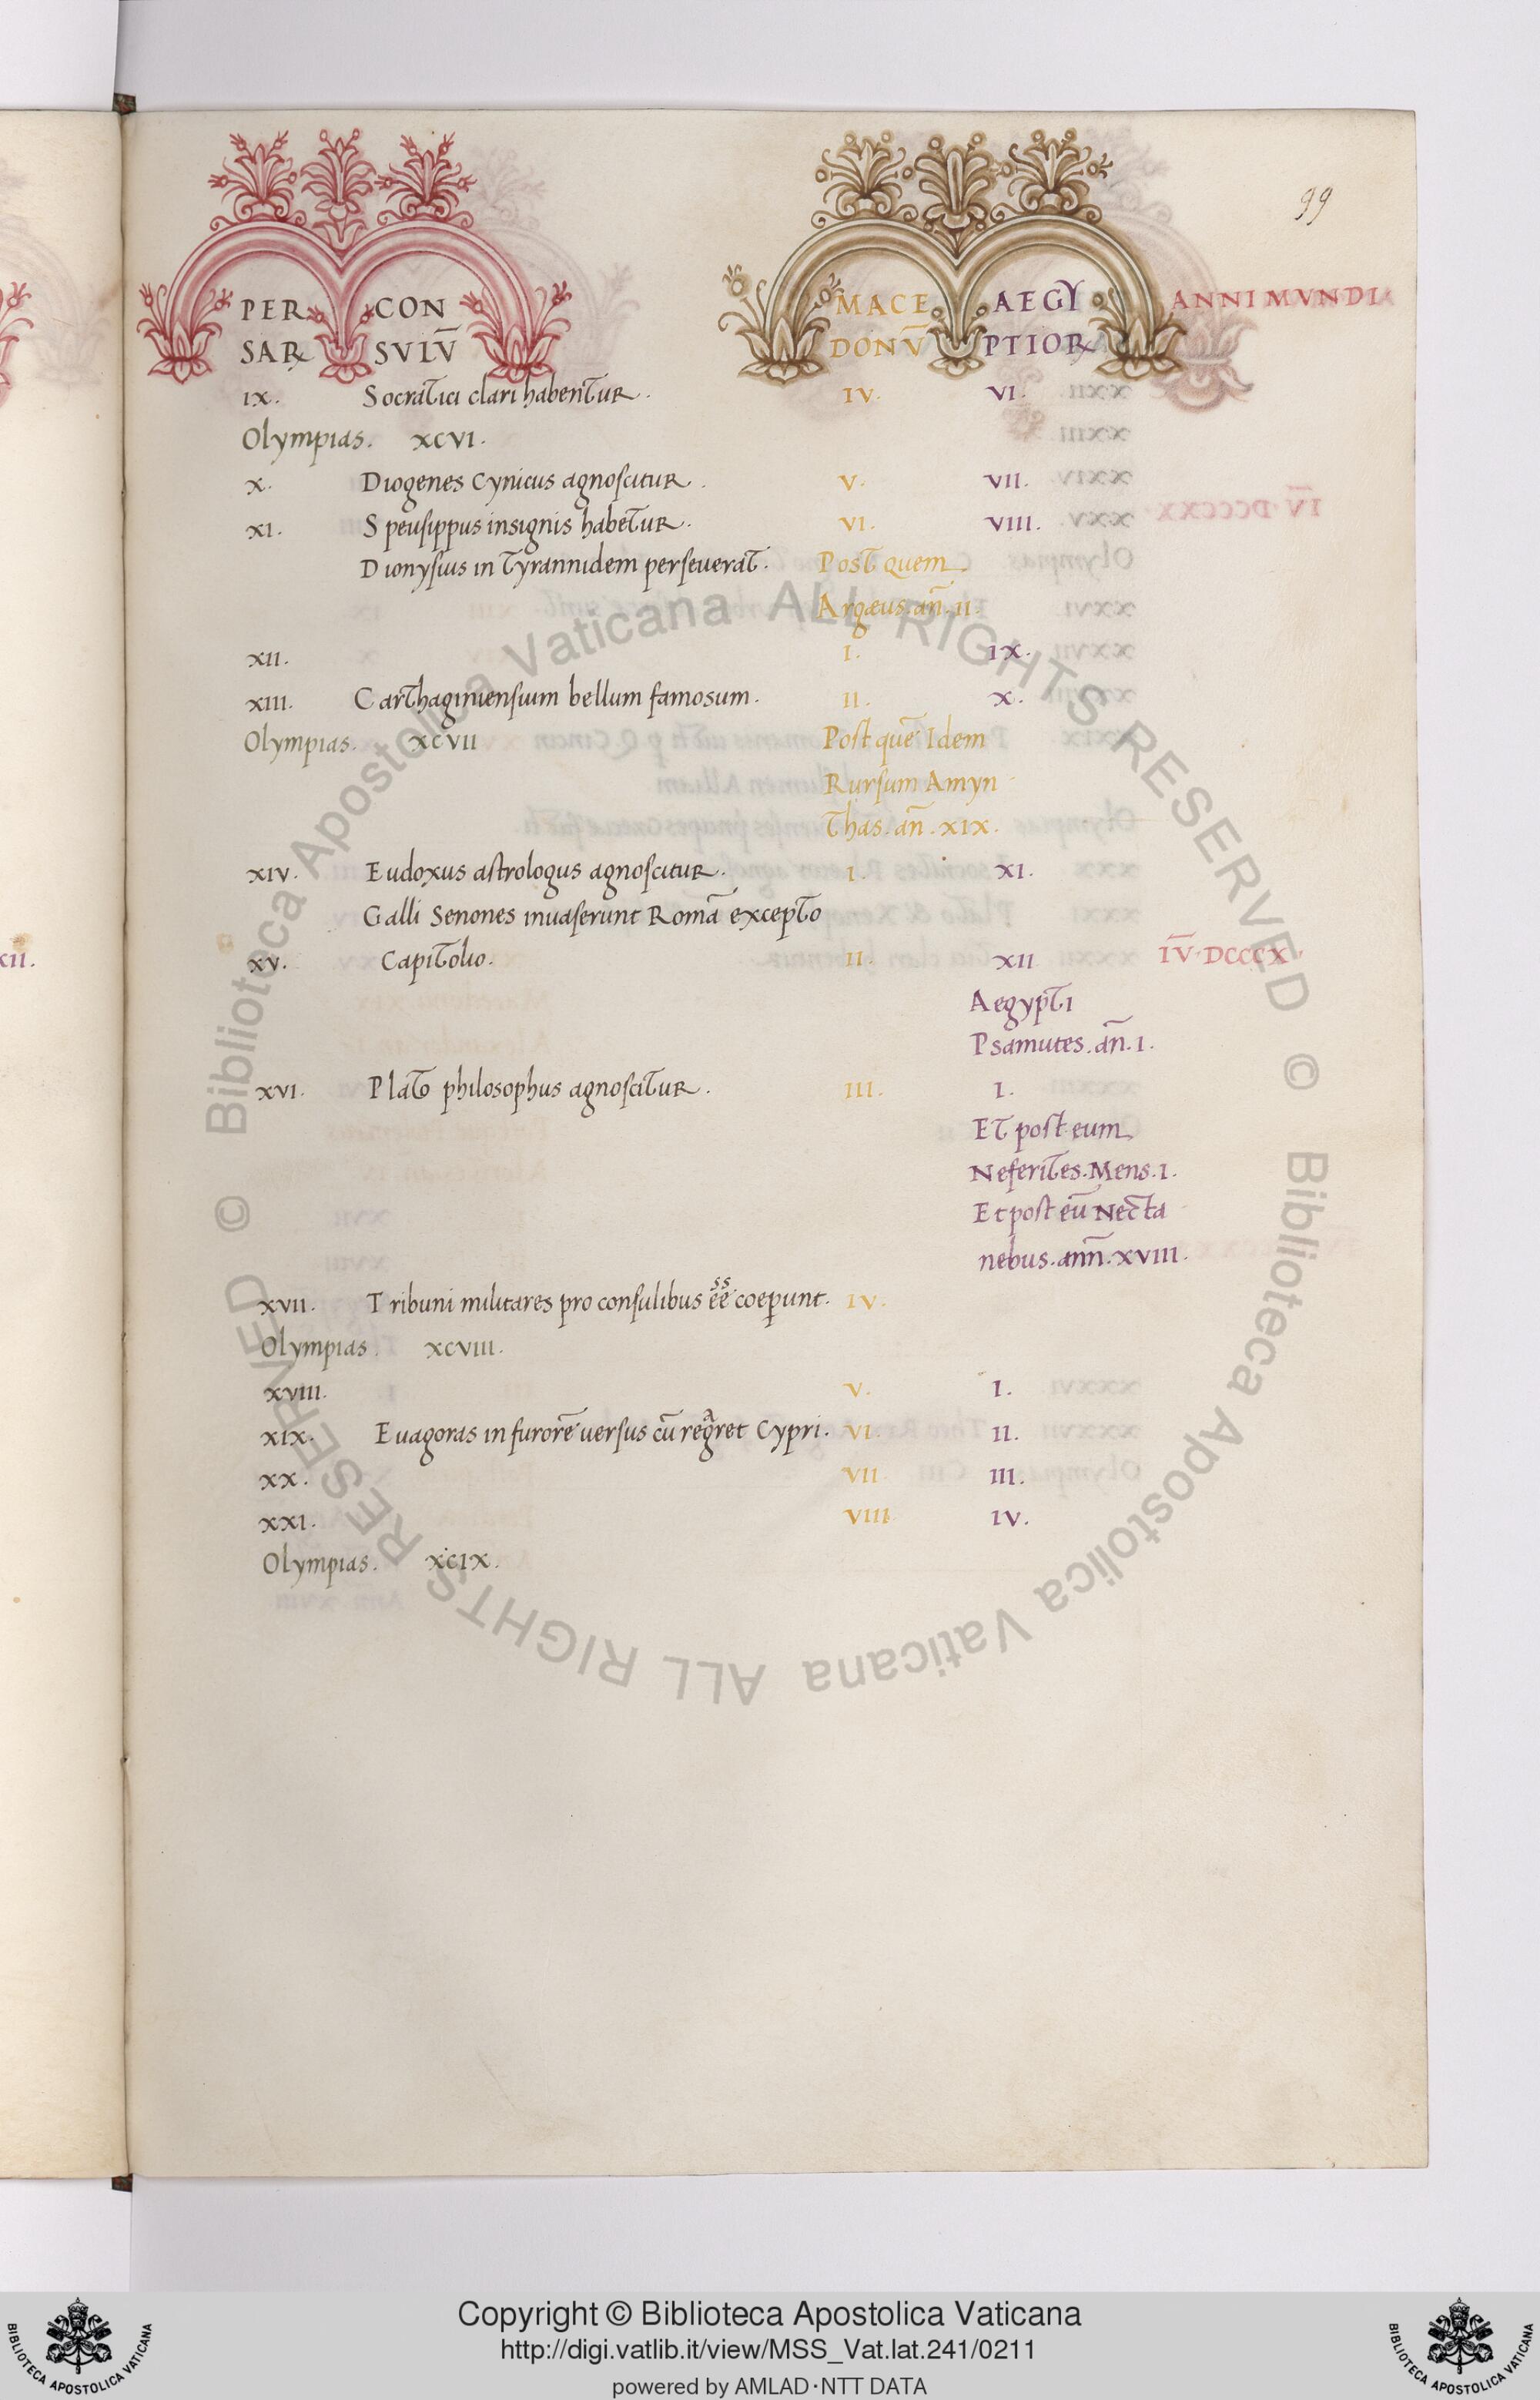 99
PER CON MACE AEGY ANNI MVNDI
SAꝜ SVLV̄ DONV̄ PTIOꝜ
IX. Socratici clari habentur. IV. VI.
Olympias. XCVI.
X. Diogenes Cynicus agnoscitur. V. VII.
XI. Speusippus insignis habetur. VI. VIII.
Dionysius in Tyrannidem perseuerat. Post quem
Argæus. an̄. II.
XII. I. IX.
XIII. Carthaginensium bellum famosum. II. X.
Olympias. XCVII Post quē Idem
Rursum Amyn
Thas. an̄. XIX.
XIV. Eudoxus astrologus agnoscitur. I. XI.
Galli Senones inuaserunt Romā excepto
XV. Capitolio. II. XII I̅V̅. DCCCX
Aegypti
Psamutes. an̄. I.
XVI. Plato philosophus agnoscitur. III. I.
Et post eum
Neferites. Mens. I.
Et post eū Necta
nebus. ann̄. XVIII.
XVII. Tribuni militares pro consulibus ēē coeꝑunt. IV.
ss
Olympias XCVIII.
XVIII. V. I.
XIX. Euagoras in furorē uersus cū regret Cypri. VI. II.
XX. VII III.
XXI. VIII. IV.
Olympias. XCIX.
© Biblioteca Apostolica Vaticana ALL RIGHTS RESERVED © Biblioteca Apostolica Vaticana ALL RIGHTS RESERVED
XII.
Copyright © Biblioteca Apostolica Vaticana
http://digi.vatlib.it/view/MSS_Vat.lat.241/0211
powered by AMLAD·NTT DATA
BIBLIOTECA APOSTOLICA VATICANA
BIBLIOTECA APOSTOLICA VATICANA